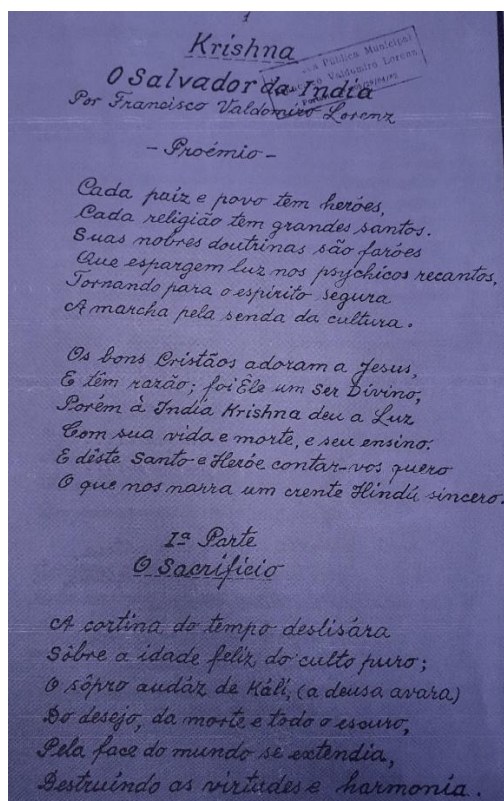 1
Krishna
O Salvador da India
Pública Municipal
Valdomiro Lorenz
Por Francisco Valdomiro Lorenz
- Proémio -
Cada paiz e povo tem heróes,
Cada religião tem grandes santos.
Suas nobres doutrinas são faróes
Que espargem luz nos psychicos recantos,
Tornando para o espírito segura
A marcha pela senda da cultura.
Os bons Cristãos adoram a Jesus,
E têm razão; foi Ele um Ser Divino;
Porém à India Krishna deu a Luz
Com sua vida e morte, e seu ensino.
E dêste Santo e Heróe contar-vos quero
O que nos narra um crente Hindú sincero.
1ª Parte
O Sacrifício
A cortina do tempo deslisára
Sôbre a idade feliz do culto puro;
O sôpro audáz de Káli, (a deusa avara)
Do desejo, da morte e todo o escuro,
Pela face do mundo se extendia,
Destruindo as virtudes e harmonia.